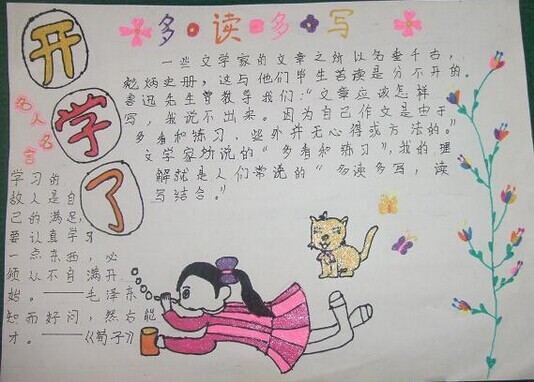 开学了
多·读·多·写
一些文学家的文章之所以名垂千古,
彪炳史册,这与他们毕生苦读是分不开的。
鲁迅先生曾教导我们:“文章应该怎样
写,我说不出来。因为自己作文是由于
多看和练习,此外并无心得或方法的。”
文学家所说的“多看和练习”,我的理
解就是人们常说的“多读多写,读
写结合。”
名人名言
学习的
敌人是自
己的满足,
要认真学习
一点东西,必
须从不自满开
始。——毛泽东
知而好问,然后能
才。——《荀子》